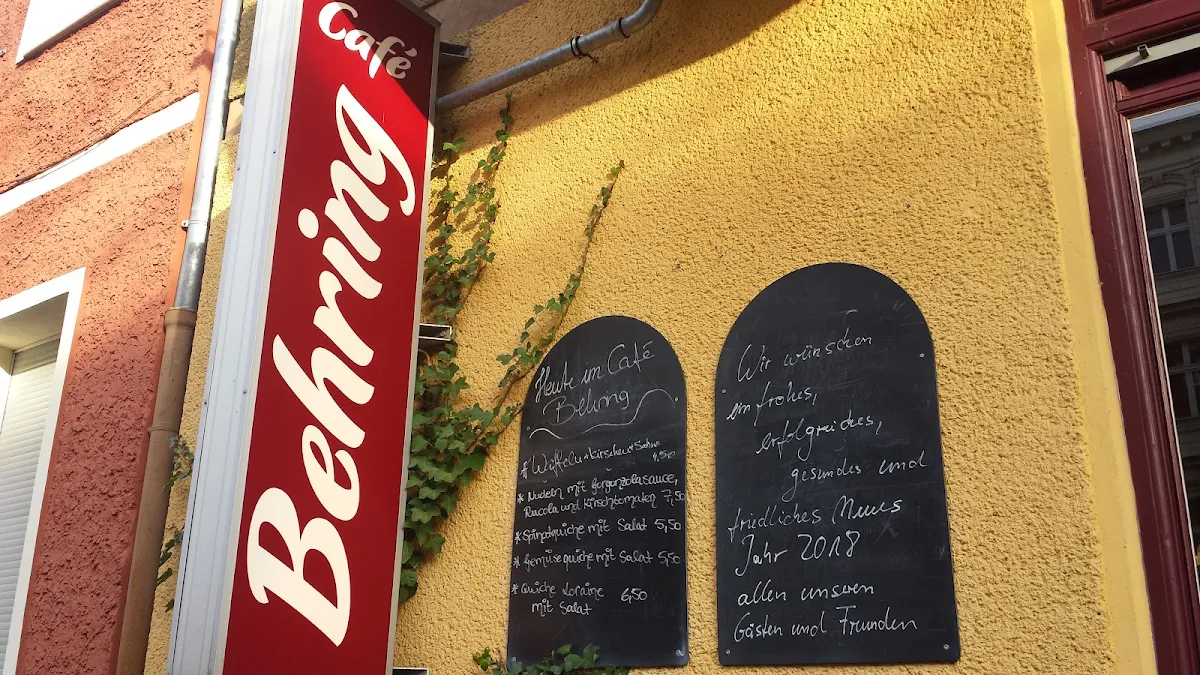 Café
Behring
Heute im Café
Behring
* Waffeln + Kirschen + Sahne
4,50
* Nudeln mit Gorgonzolasauce,
Rucola und Kirschtomaten 7,50
* Spinatquiche mit Salat 5,50
* Gemüsequiche mit Salat 5,50
* Quiche Loraine 6,50
mit Salat
Wir wünschen
ein frohes,
erfolgreiches,
gesundes und
friedliches Neues
Jahr 2018
allen unseren
Gästen und Freunden